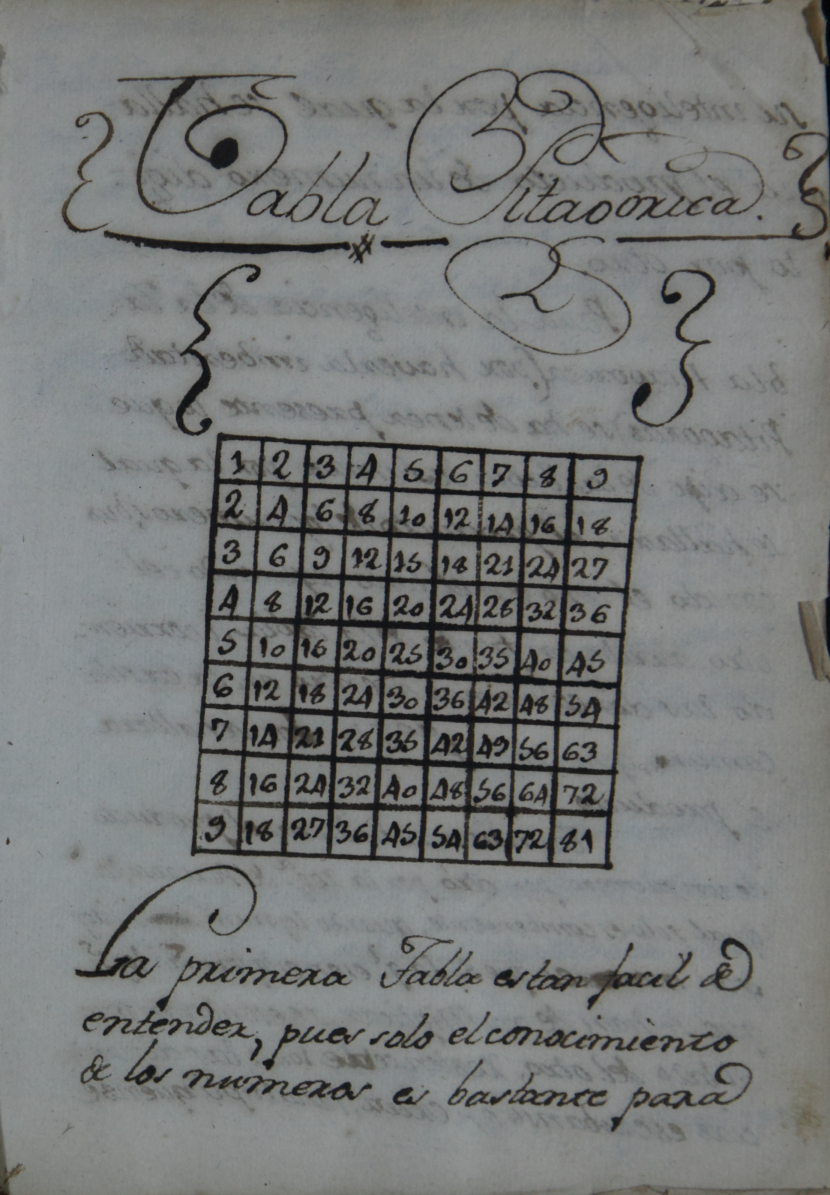 Tabla Pitagorica.
2
1 2 3 4 5 6 7 8 9
2 4 6 8 10 12 14 16 18
3 6 9 12 15 18 21 24 27
4 8 12 16 20 24 26 32 36
5 10 16 20 25 30 35 40 45
6 12 18 24 30 36 42 48 54
7 14 21 28 35 42 49 56 63
8 16 24 32 40 48 56 64 72
9 18 27 36 45 54 63 72 81
La primera Tabla es tan facil de
entender, pues solo el conocimiento
de los numeros es bastante para